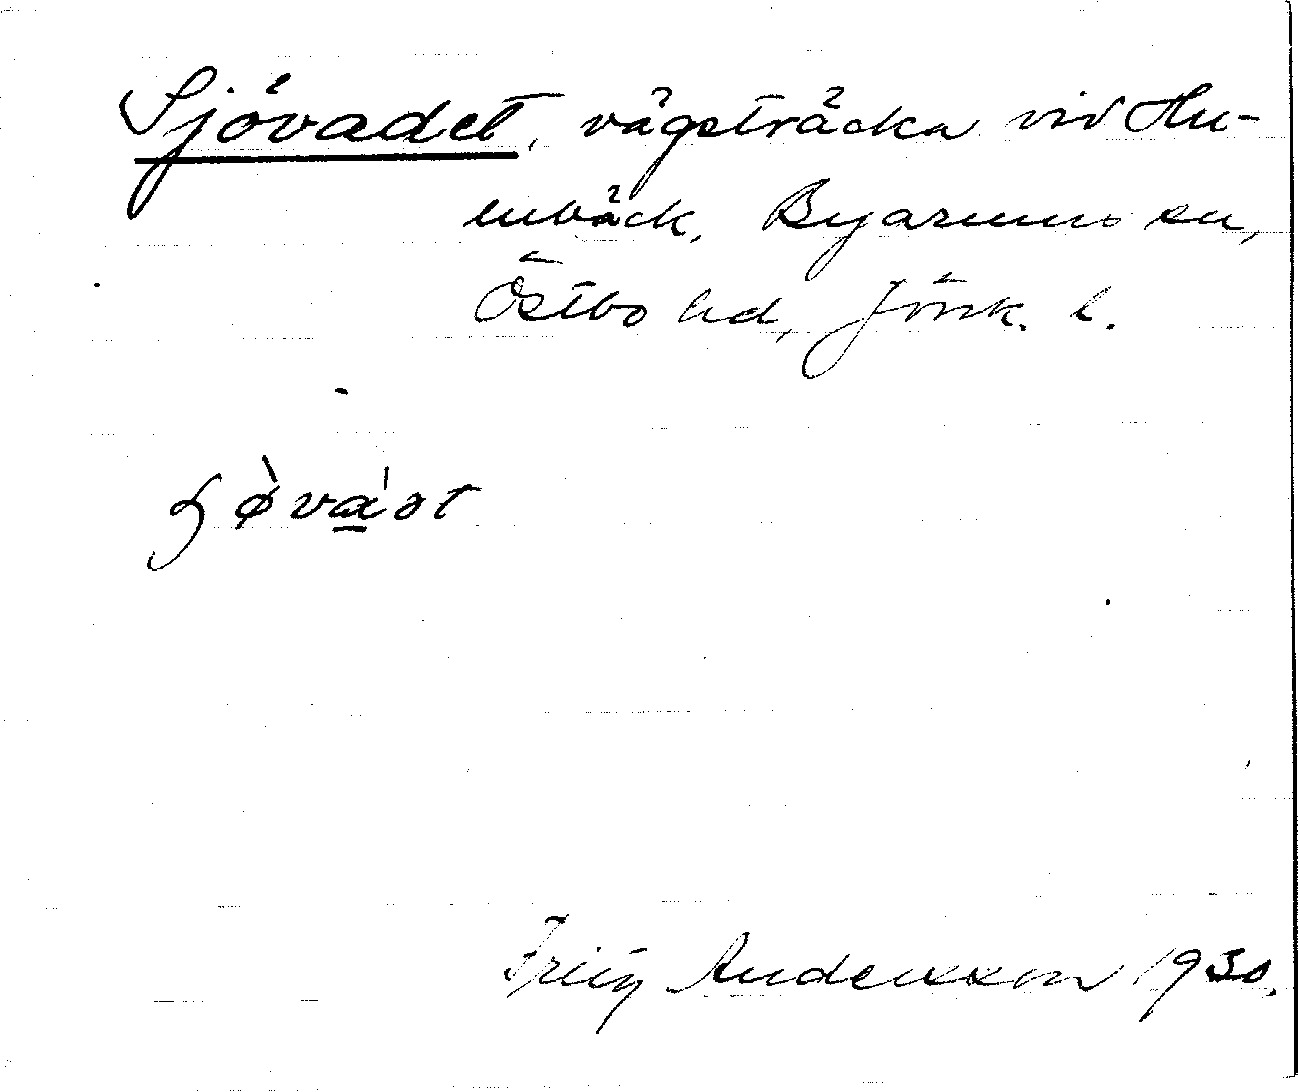 Sjövadet, vägsträcka vid Hu-
lubäck, Byarums sn,
Östbo hd, Jönk. l.
Fritz Andersson 1930.